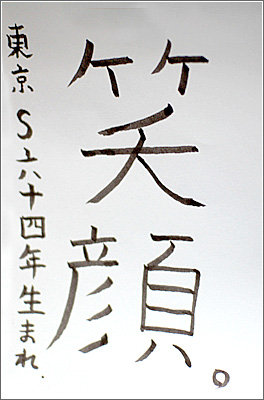 笑顔。
東京S六十四年生まれ.